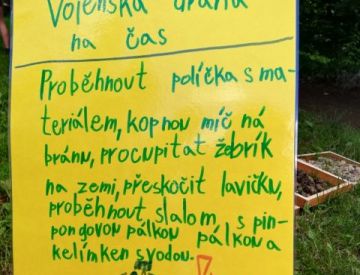 Vojenská dráha
na čas
Proběhnout políčka s ma-
teriálem, kopnou míč ná
bránu, procupitat žebřík
na zemi, přeskočit lavičku,
proběhnout slalom, s pin-
pongovou pálkou pálkou a
kelímken s vodou.